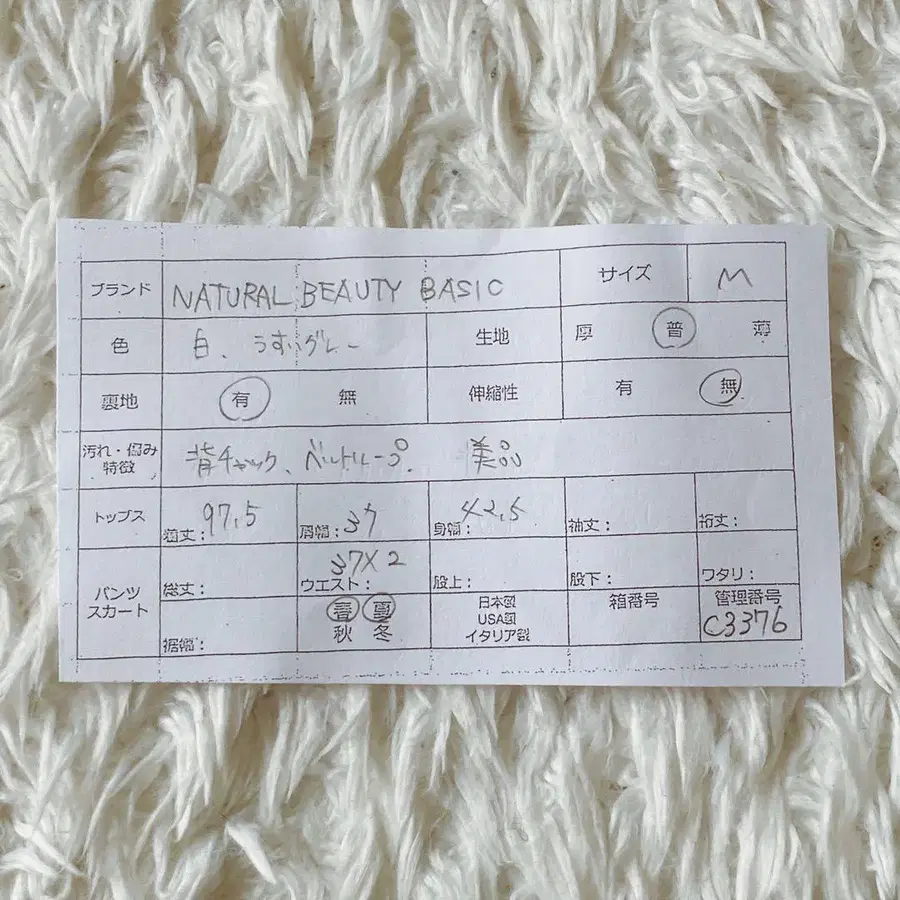 ブランド NATURAL BEAUTY BASIC サイズ M
色 白、うすいグレー 生地 厚 普 薄
裏地 有 無 伸縮性 有 無
汚れ・傷み 特徴 背チャック、ベルトループ. 美品
トップス 着丈: 97,5 肩幅: 37 身幅: 42,5 袖丈: 裄丈:
パンツ スカート 総丈: ウエスト: 37X2 股上: 股下: ワタリ:
裾幅: 春 夏 秋 冬 日本製 USA製 イタリア製 箱番号 管理番号 C3376